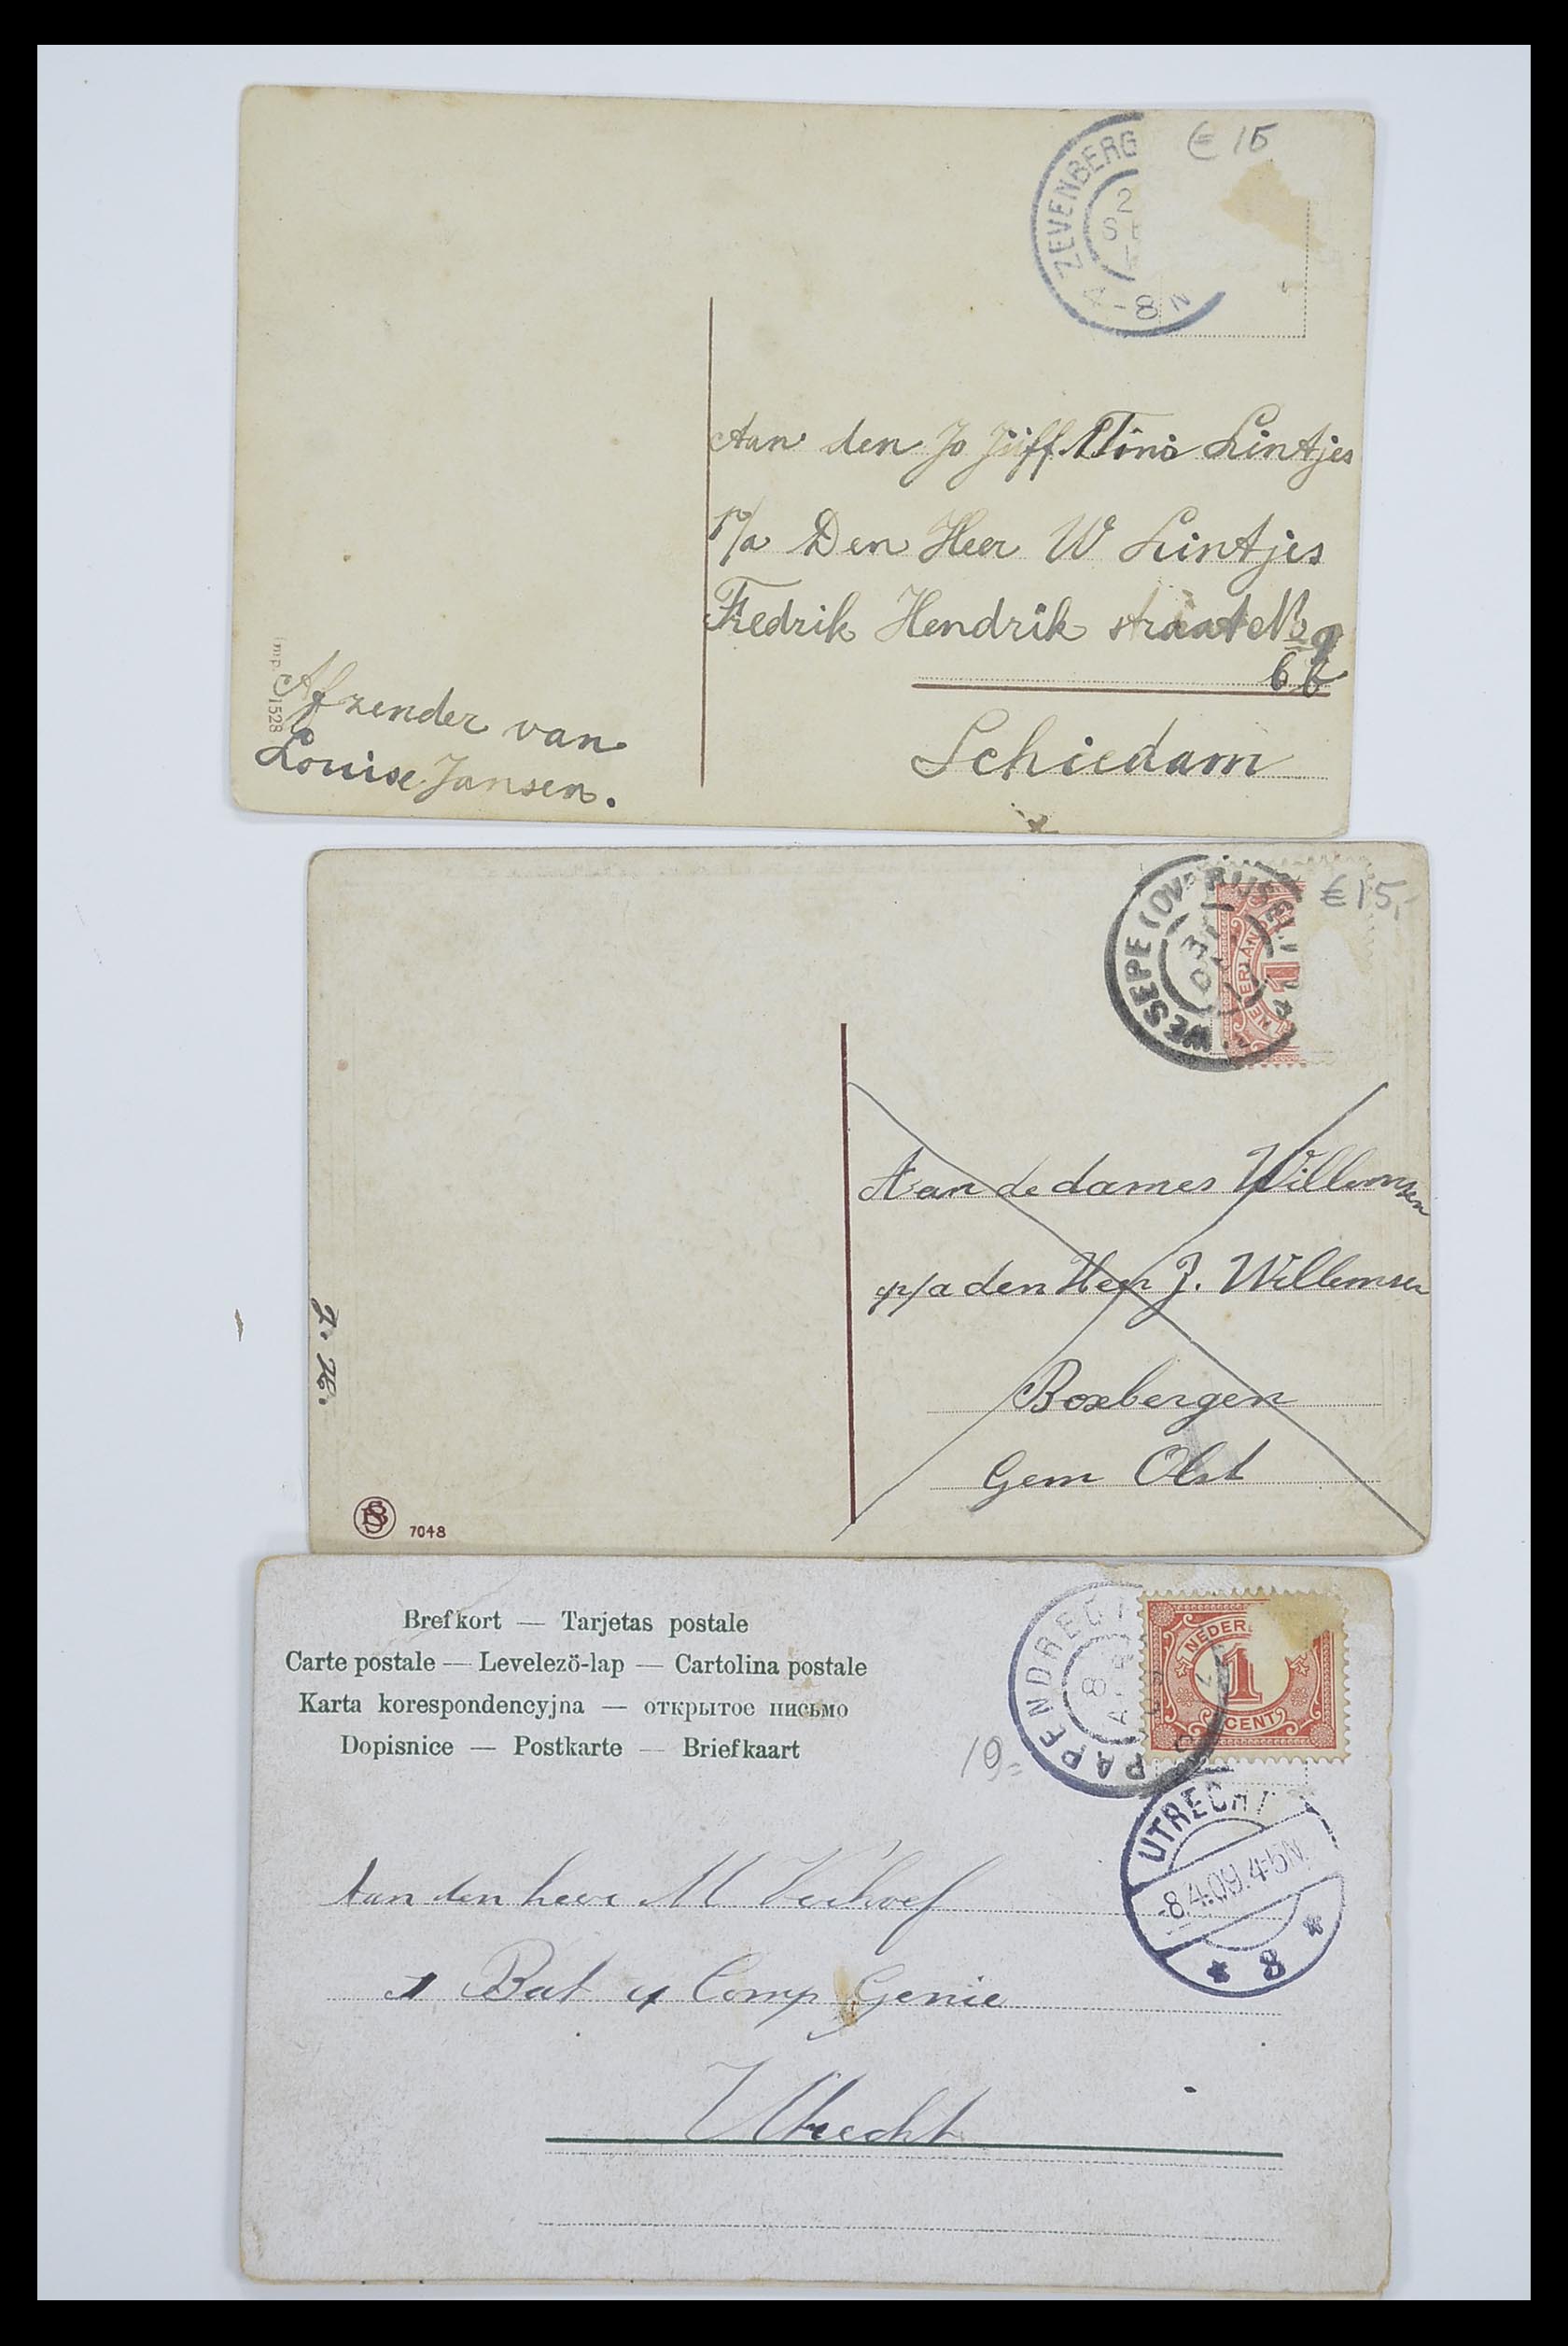 € 15
ZEVENBERG
2
SE
4-8 N
Aan den Jo Juff Lintjes
p/a Den Heer W Lintjes
Fredrik Hendrik straat No
Schiedam
Imp. 1528
Afzender van
Louise Jansen.
€ 15,-
WESEPE (OV RIJSEL)
31
NEDERLAND
1
Aan de dames Willemsen
p/a den Heer J. Willemsen
Boxbergen
Gem Olst
J. H.
7048
Brefkort — Tarjetas postale
Carte postale — Levelezö-lap — Cartolina postale
Karta korespondencyjna — открытое письмо
Dopisnice — Postkarte — Briefkaart
PAPENDRECHT
8
NEDER
1
CENT
19=
UTRECHT
-8.4.09.4-5N.
* 8 *
Aan den heer M Verhoef
1 Bat 4 Comp Genie
Utrecht